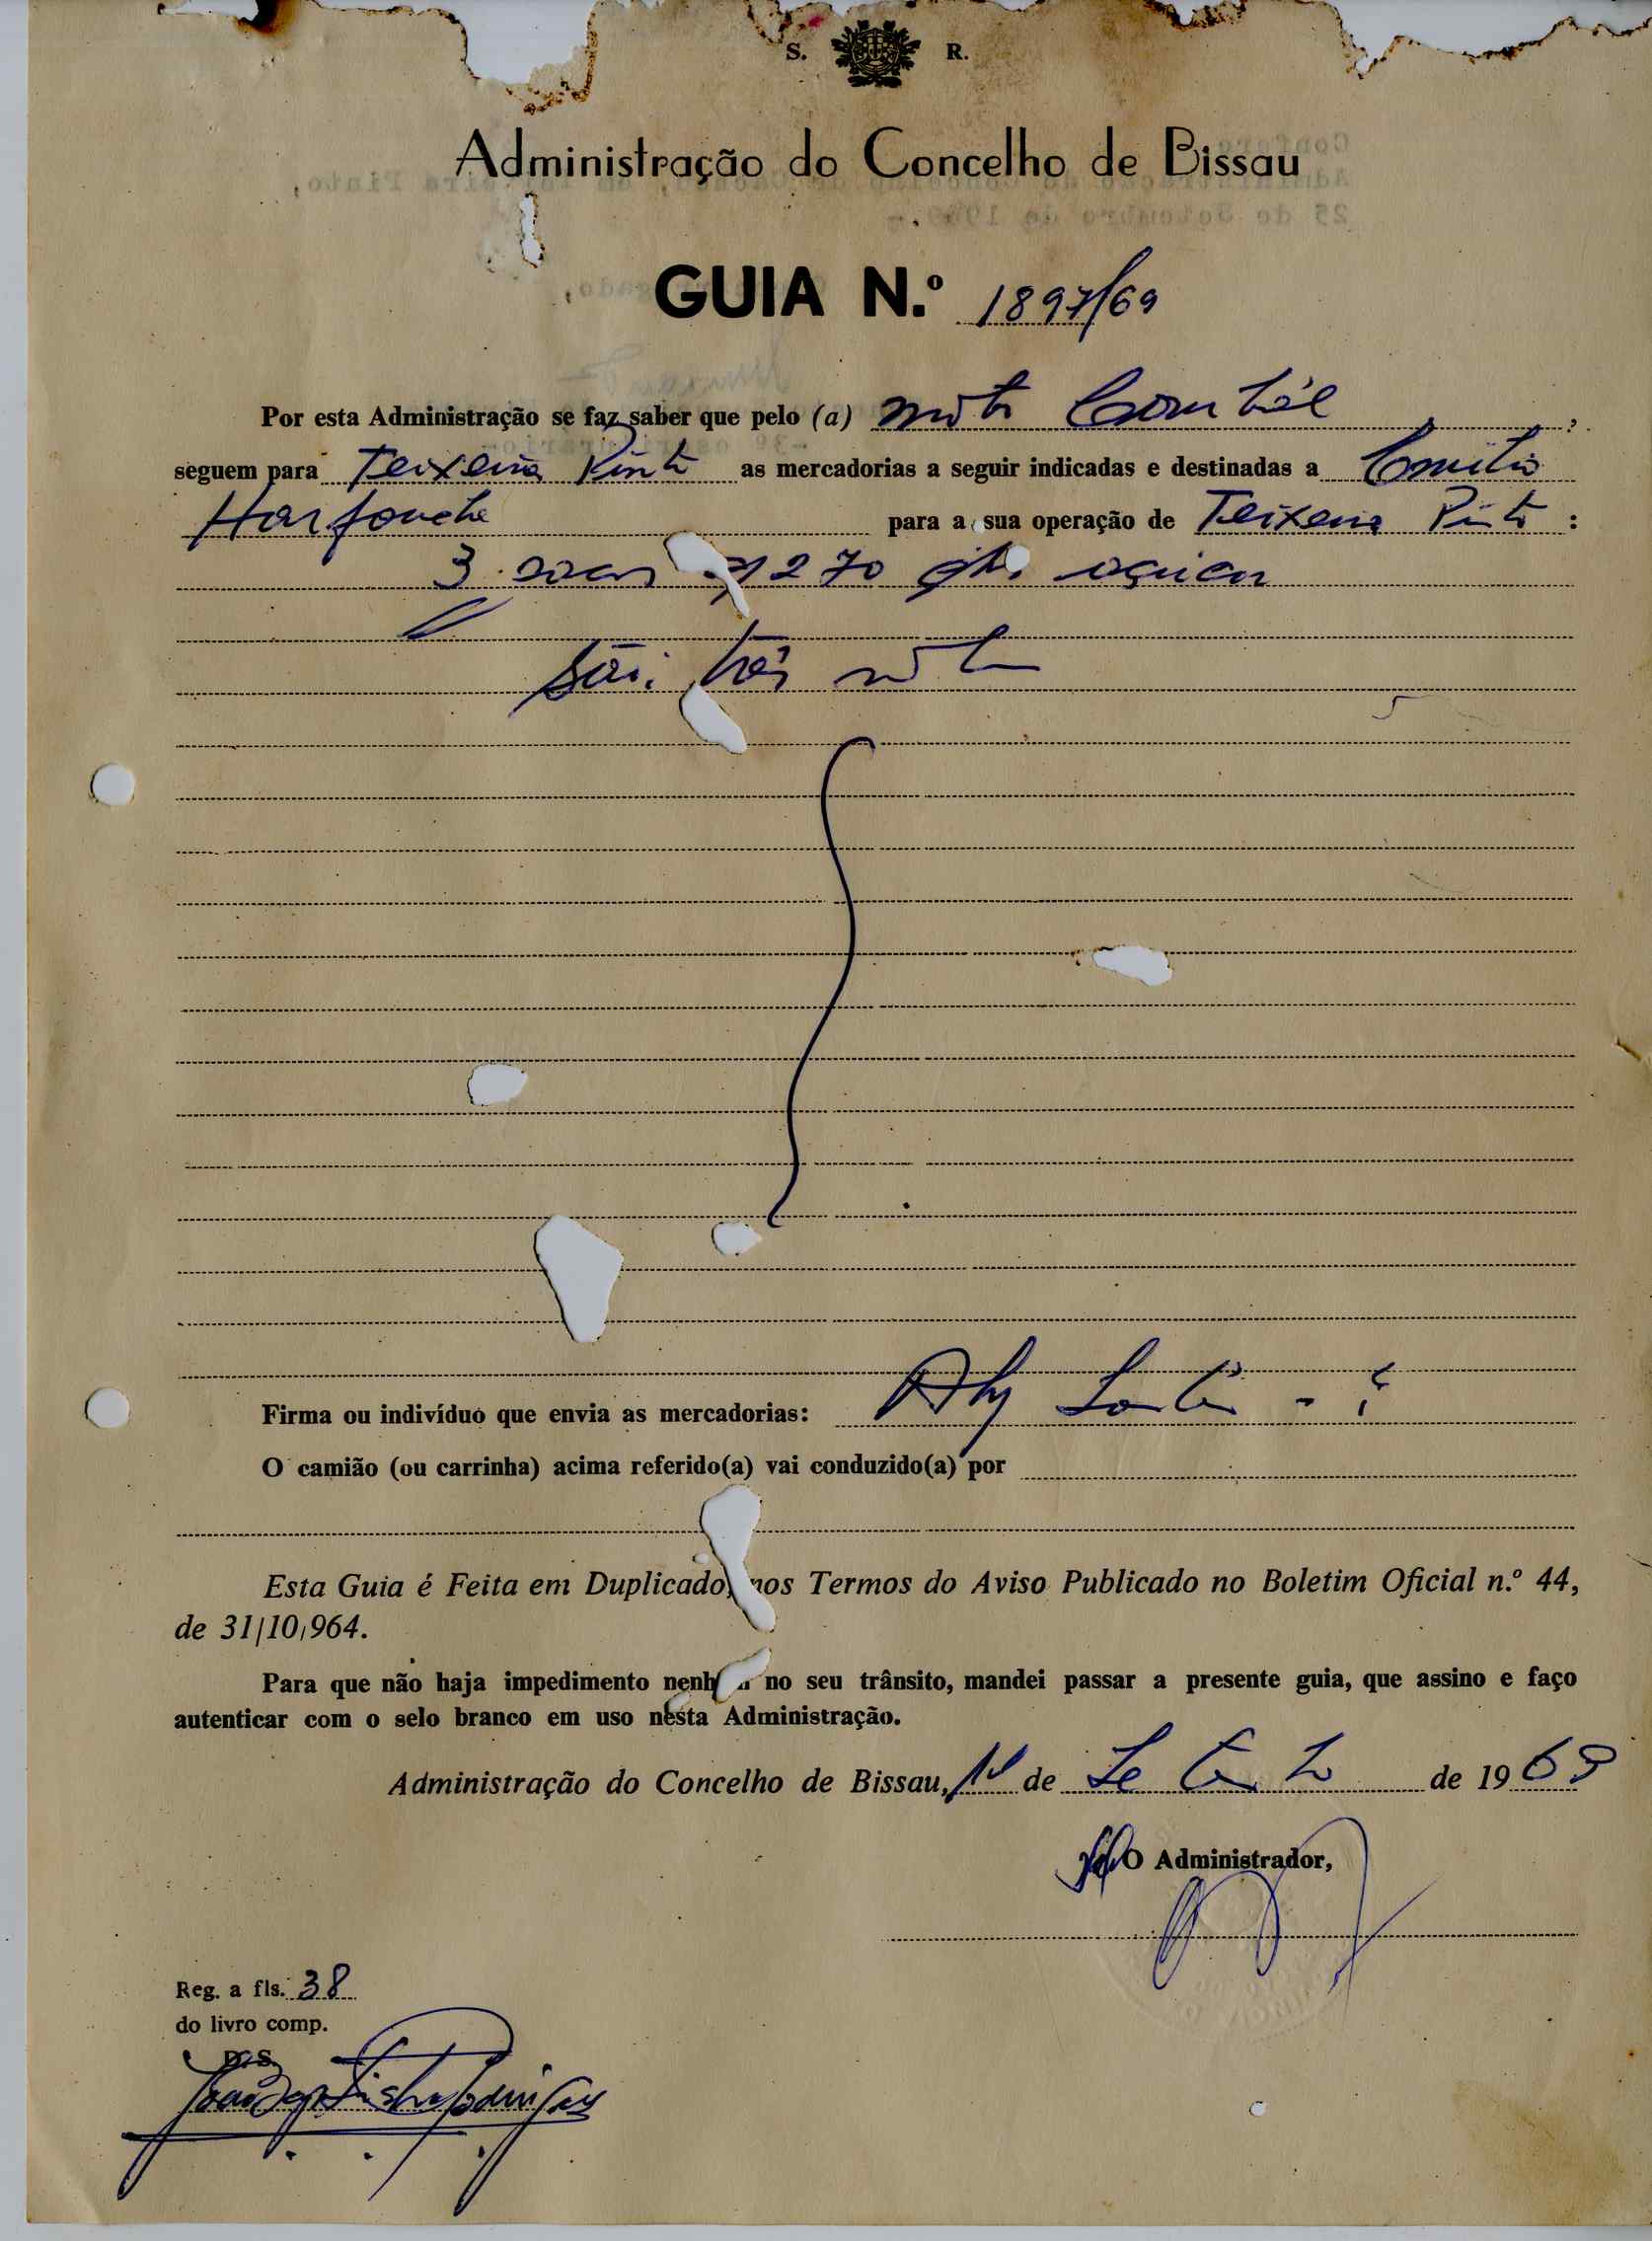 S. R.
Administração do Concelho de Bissau
GUIA N.º 1897/69
Por esta Administração se faz saber que pelo (a) ,
seguem para Teixeira Pinto as mercadorias a seguir indicadas e destinadas a Emílio
Harfouche para a sua operação de Teixeira Pinto :
3 270
São três
Firma ou indivíduo que envia as mercadorias: Aly
O camião (ou carrinha) acima referido(a) vai conduzido(a) por
Esta Guia é Feita em Duplicado, nos Termos do Aviso Publicado no Boletim Oficial n.º 44,
de 31/10/964.
Para que não haja impedimento no seu trânsito, mandei passar a presente guia, que assino e faço
autenticar com o selo branco em uso nesta Administração.
Administração do Concelho de Bissau, de de 1969
O Administrador,
Reg. a fls. 38
do livro comp.